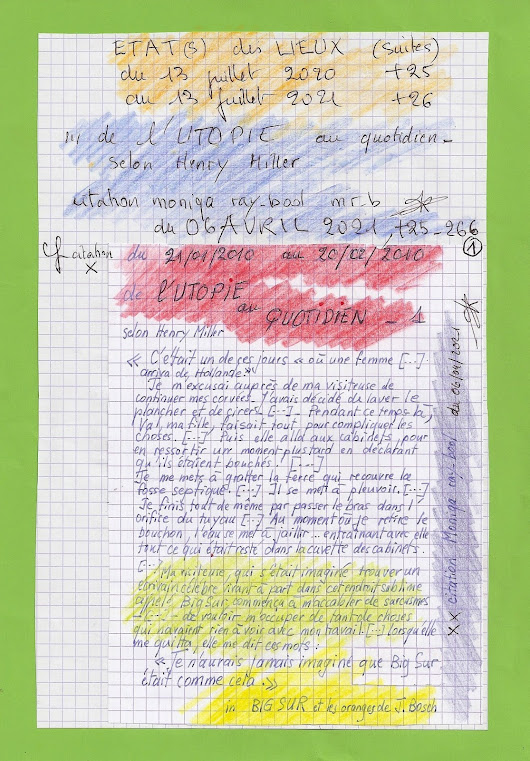 ETAT(S) des LIEUX (suites)
du 13 juillet 2020 +25
au 13 juillet 2021 +26
in de l'UTOPIE au quotidien -
selon Henry Miller
citation moniqa ray-bool mr.b
du 06 AVRIL 2021, +25-266
①
cf citation
X
du 21/01/2010 au 20/02/2010
de l'UTOPIE
au QUOTIDIEN - 1
selon Henry Miller
« C'était un de ces jours « où une femme [...]
arriva de Hollande.
Je m'excusai auprès de ma visiteuse de
continuer mes corvées. J'avais décidé de laver le
plancher et de cirer [...] Pendant ce temps là,
Val, ma fille, faisait tout pour compliquer les
choses. [...] Puis elle alla aux cabinets, pour
en ressortir un moment plus tard en déclarant
qu'ils étaient bouchés. [...]
Je me mets à gratter la terre qui recouvre la
fosse septique. [...] Il se met à pleuvoir. [...]
Je finis tout de même par passer le bras dans l'
orifice du tuyau [...] Au moment où je retire le
bouchon, l'eau se met à jaillir... entraînant avec elle
tout ce qui était resté dans la cuvette des cabinets.
[...] Ma visiteuse, qui s'était imaginé trouver un
écrivain célèbre vivant à part dans cet endroit sublime
appelé Big Sur commença à m'accabler de sarcasmes
de vouloir m'occuper de tant de choses
qui n'avaient rien à voir avec mon travail. [...] Lorsqu'elle
me quitta, elle me dit ces mots :
« Je n'aurais jamais imaginé que Big Sur
était comme cela. »
in BIG SUR et les oranges de J. Bosch
XX citation Moniqa ray-bool du 06/04/2021